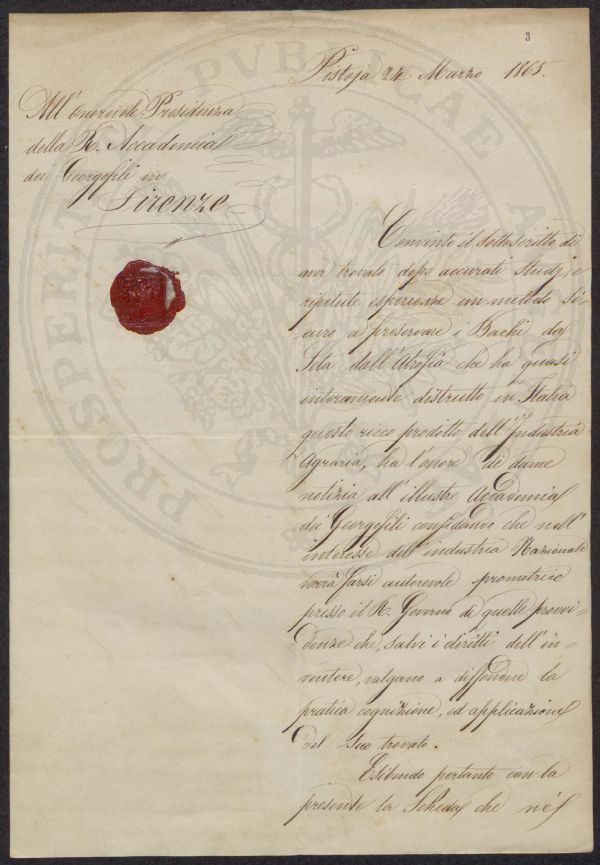 3
Pistoja 24 Marzo 1865.
All'Onorevole Presidenza
della R. Accademia
dei Georgofili in
Firenze
Convinto il sottoscritto di
aver trovato dopo accurati studj, e
ripetute esperienze un metodo si-
curo a preservare i Bachi da
Seta dall'Atrofia che ha quasi
interamente distrutto in Italia
questo ricco prodotto dell'Industria
Agraria, ha l'onore di darne
notizia all'illustre Accademia
dei Georgofili confidando che nell'
interesse dell'industria Nazionale
vorrà farsi autorevole promotrice
presso il R. Governo di quelle provvi-
denze che, salvi i diritti dell'in-
ventore, valgano a diffondere la
pratica cognizione, ed applicazione
del suo trovato.
Esibendo pertanto con la
presente la Scheda che nel
PROSPERITATI PVBLICAE A